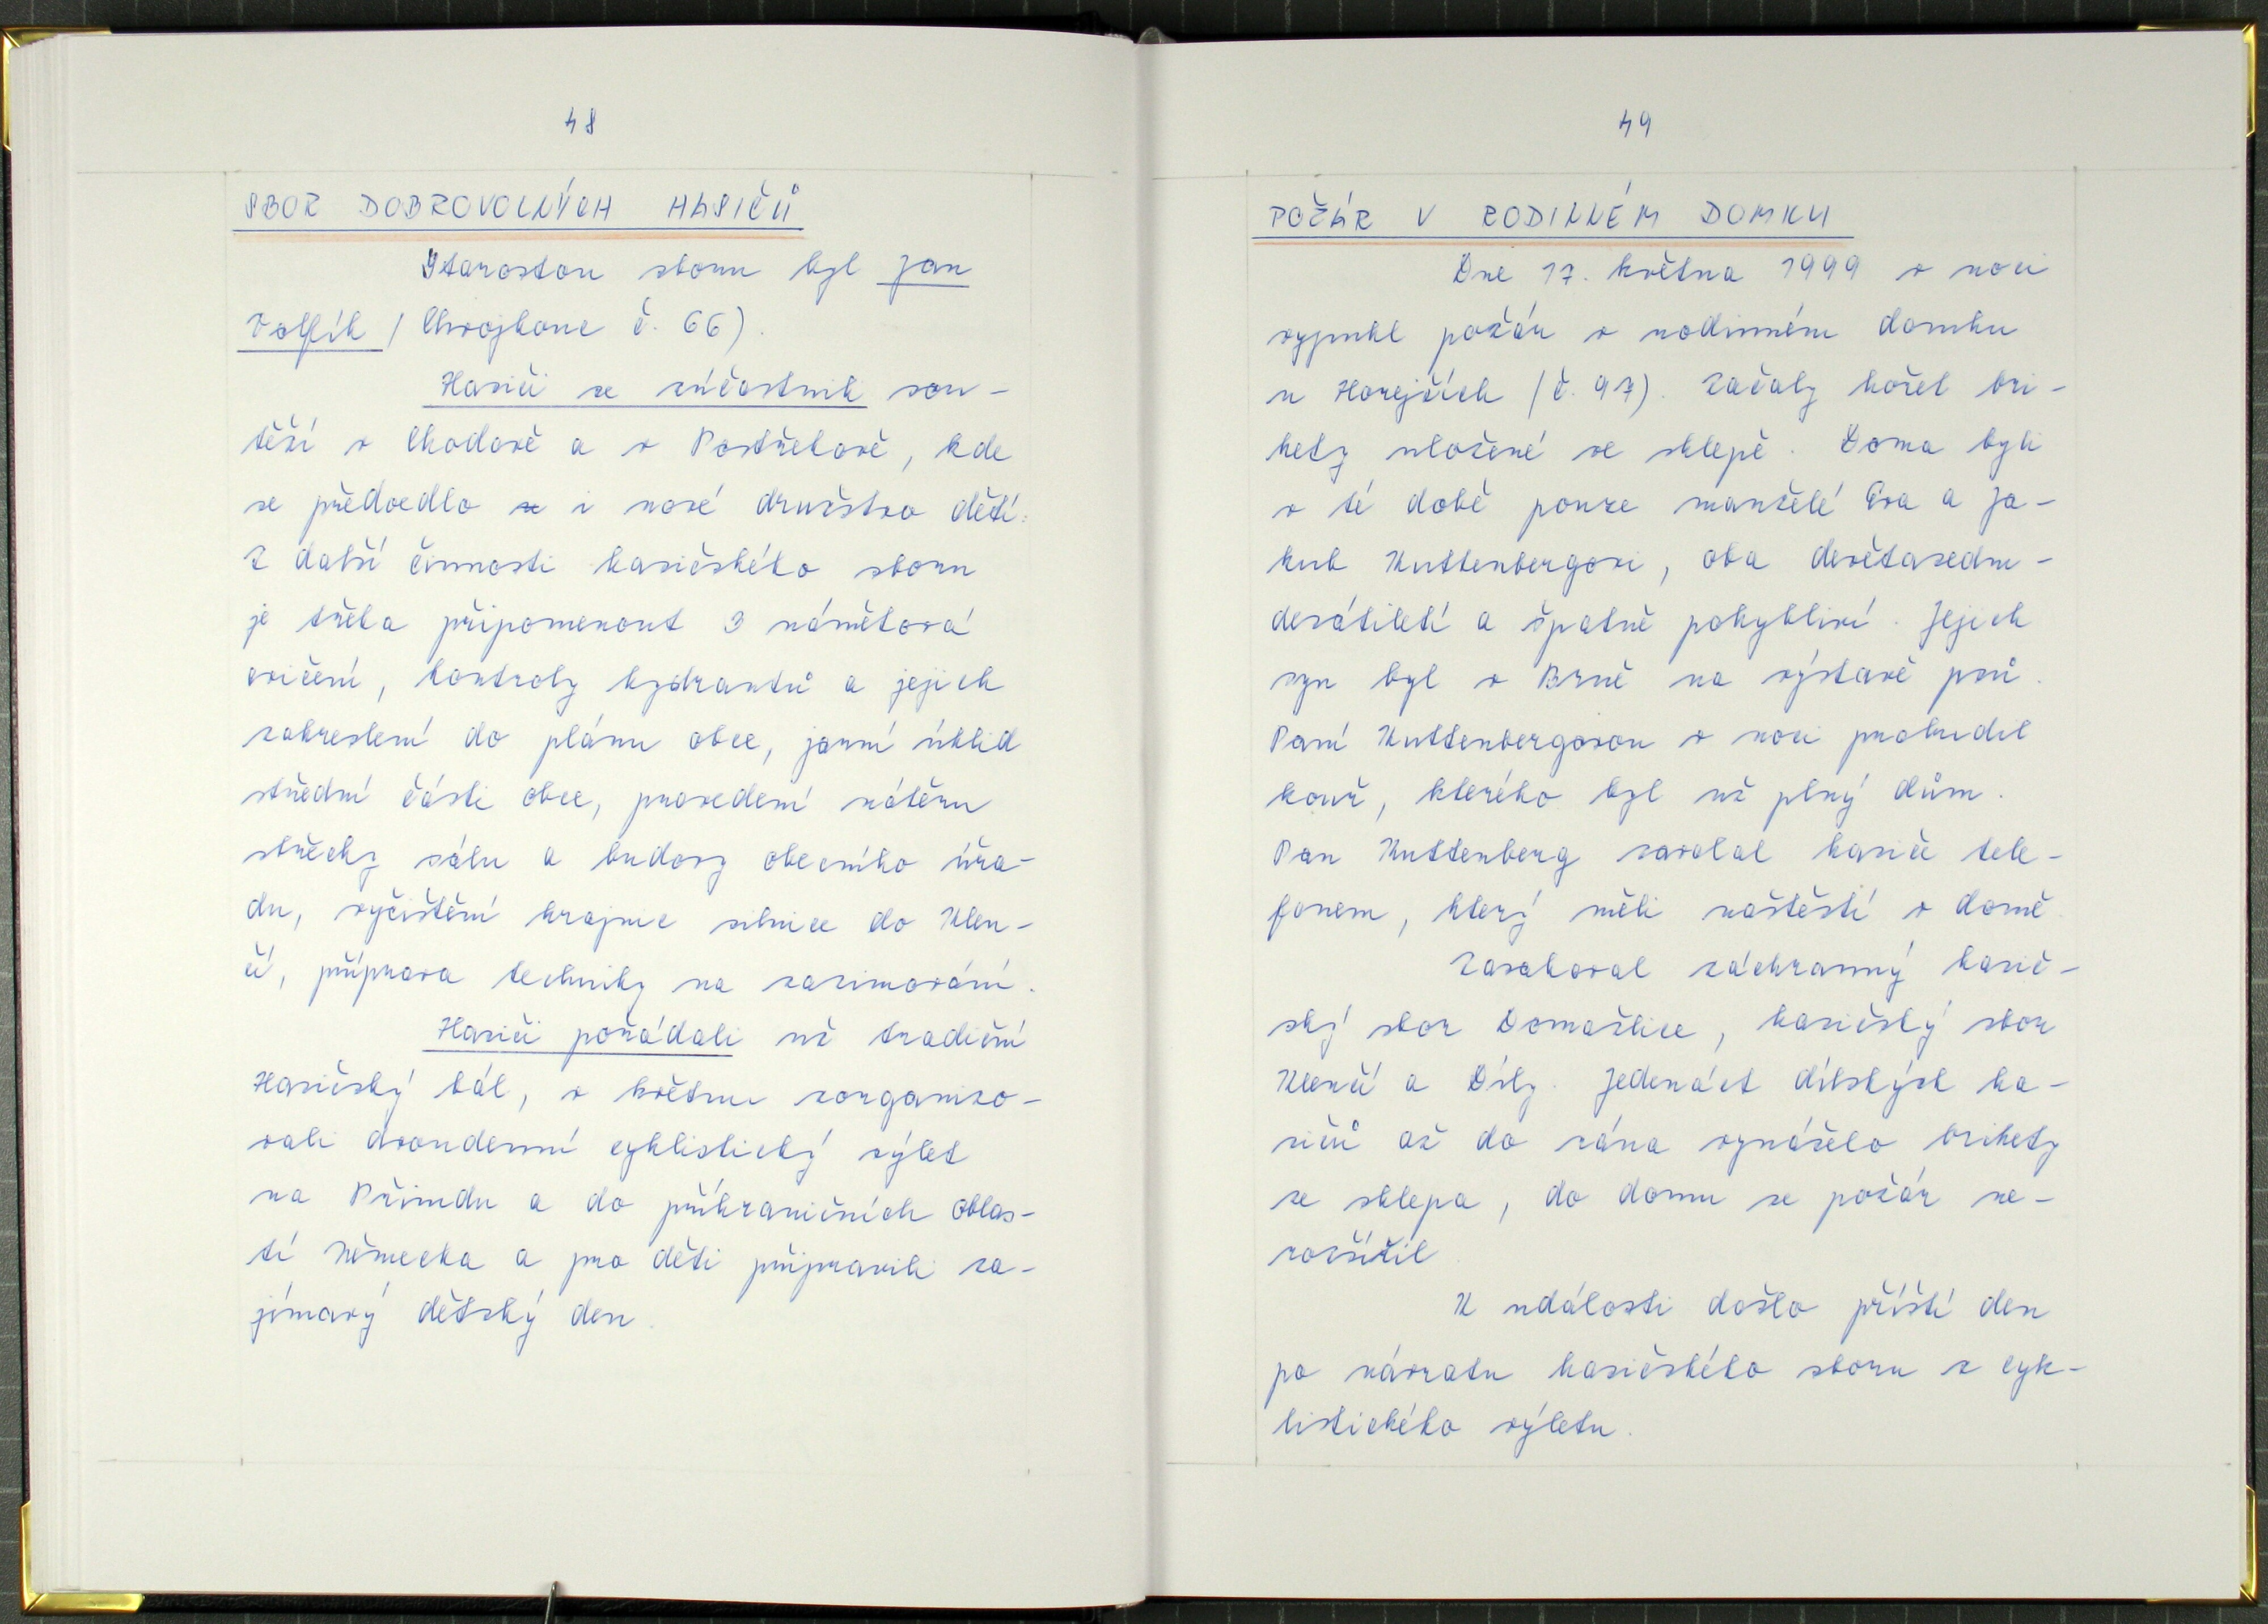 48
SBOR DOBROVOLNÝCH HASIČŮ
Starostou sboru byl Jan
Volfík (Chrojkouc č. 66).
Hasiči se zúčastnili sou-
těží v Chodově a v Postřekově, kde
se předvedlo i nové družstvo dětí.
Z další činnosti hasičského sboru
je třeba připomenout 3 námětová
cvičení, kontroly hydrantů a jejich
zakreslení do plánu obce, jarní úklid
střední části obce, provedení nátěru
střechy sálu a budovy obecního úřa-
du, vyčištění krajnic silnice do Klen-
čí, příprava techniky na zazimování.
Hasiči pořádali už tradiční
Hasičský bál, v květnu zorganizo-
vali dvoudenní cyklistický výlet
na Přimdu a do příhraničních oblas-
tí Německa a pro děti připravili za-
jímavý dětský den.
49
POŽÁR V RODINNÉM DOMKU
Dne 17. května 1999 v noci
vypukl požár v rodinném domku
u Horejších (č. 97). Začaly hořet bri-
kety uložené ve sklepě. Doma byli
v té době pouze manželé Eva a Ja-
kub Kuttenbergovi, oba devětasedm-
desátiletí a špatně pohybliví. Jejich
syn byl v Brně na výstavě psů.
Paní Kuttenbergovou v noci probudil
kouř, kterého byl už plný dům.
Pan Kuttenberg zavolal hasiče tele-
fonem, který měli naštěstí v domě.
Zasahoval záchranný hasič-
ský sbor Domažlice, hasičský sbor
Klenčí a Díly. Jedenáct dílských ha-
sičů až do rána vynášelo brikety
ze sklepa, do domu se požár ne-
rozšířil.
K události došlo příští den
po návratu hasičského sboru z cyk-
listického výletu.